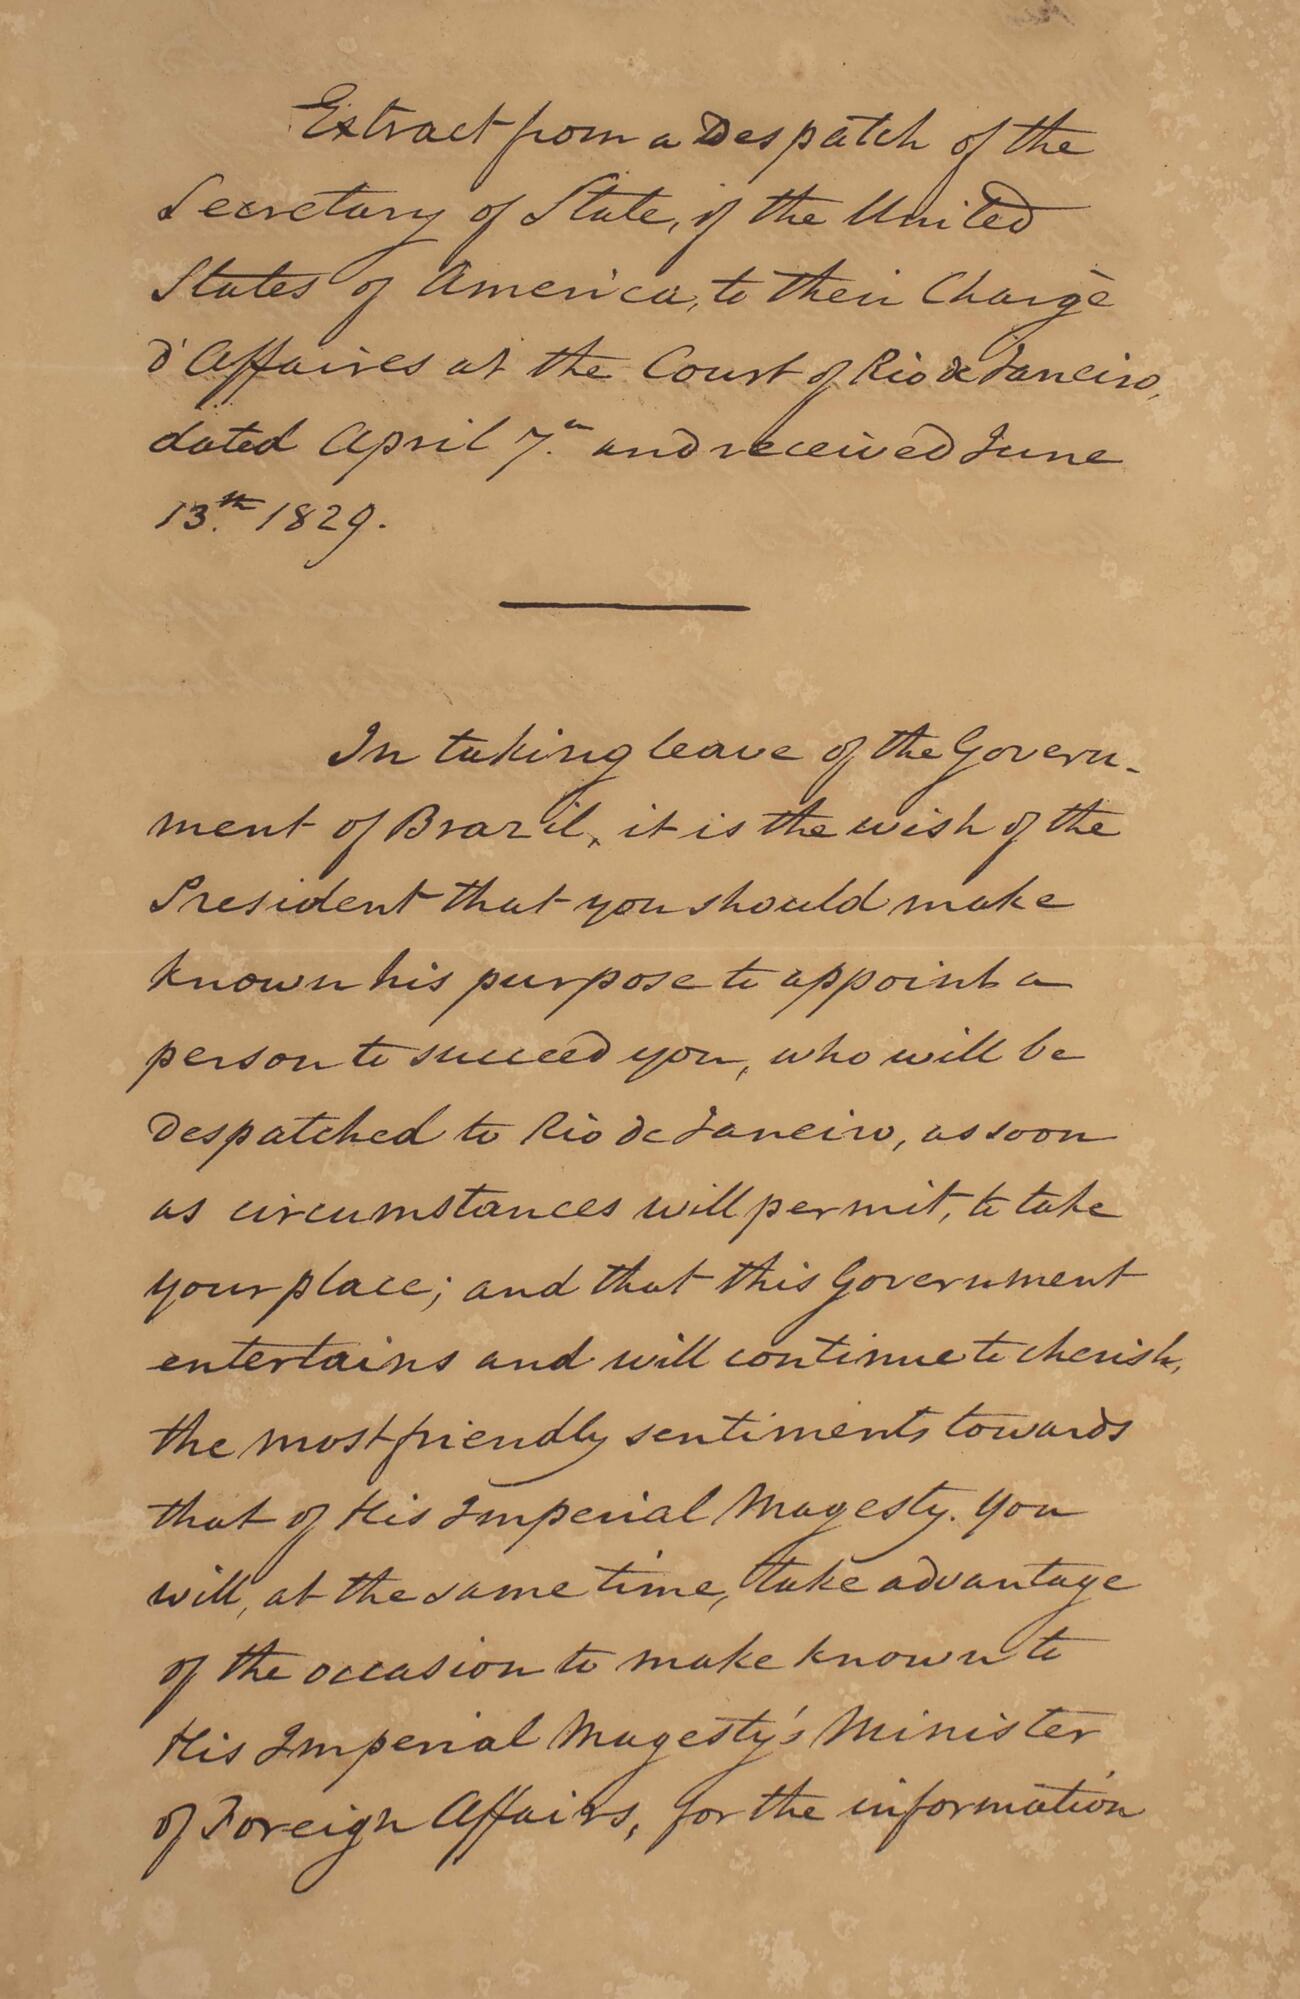 Extract from a Despatch of the
Secretary of State, of the United
States of America, to their Chargè
d'Affaires at the Court of Rio de Janeiro,
dated April 7.th and received June
13.th 1829.
In taking leave of the Govern-
ment of Brazil, it is the wish of the
President that you should make
known his purpose to appoint a
person to succeed you, who will be
Despatched to Rio de Janeiro, as soon
as circumstances will permit, to take
your place; and that this Government
entertains and will continue to cherish,
the most friendly sentiments towards
that of His Imperial Magesty. You
will, at the same time, take advantage
of the occasion to make known to
His Imperial Magesty's Minister
of Foreign Affairs, for the information